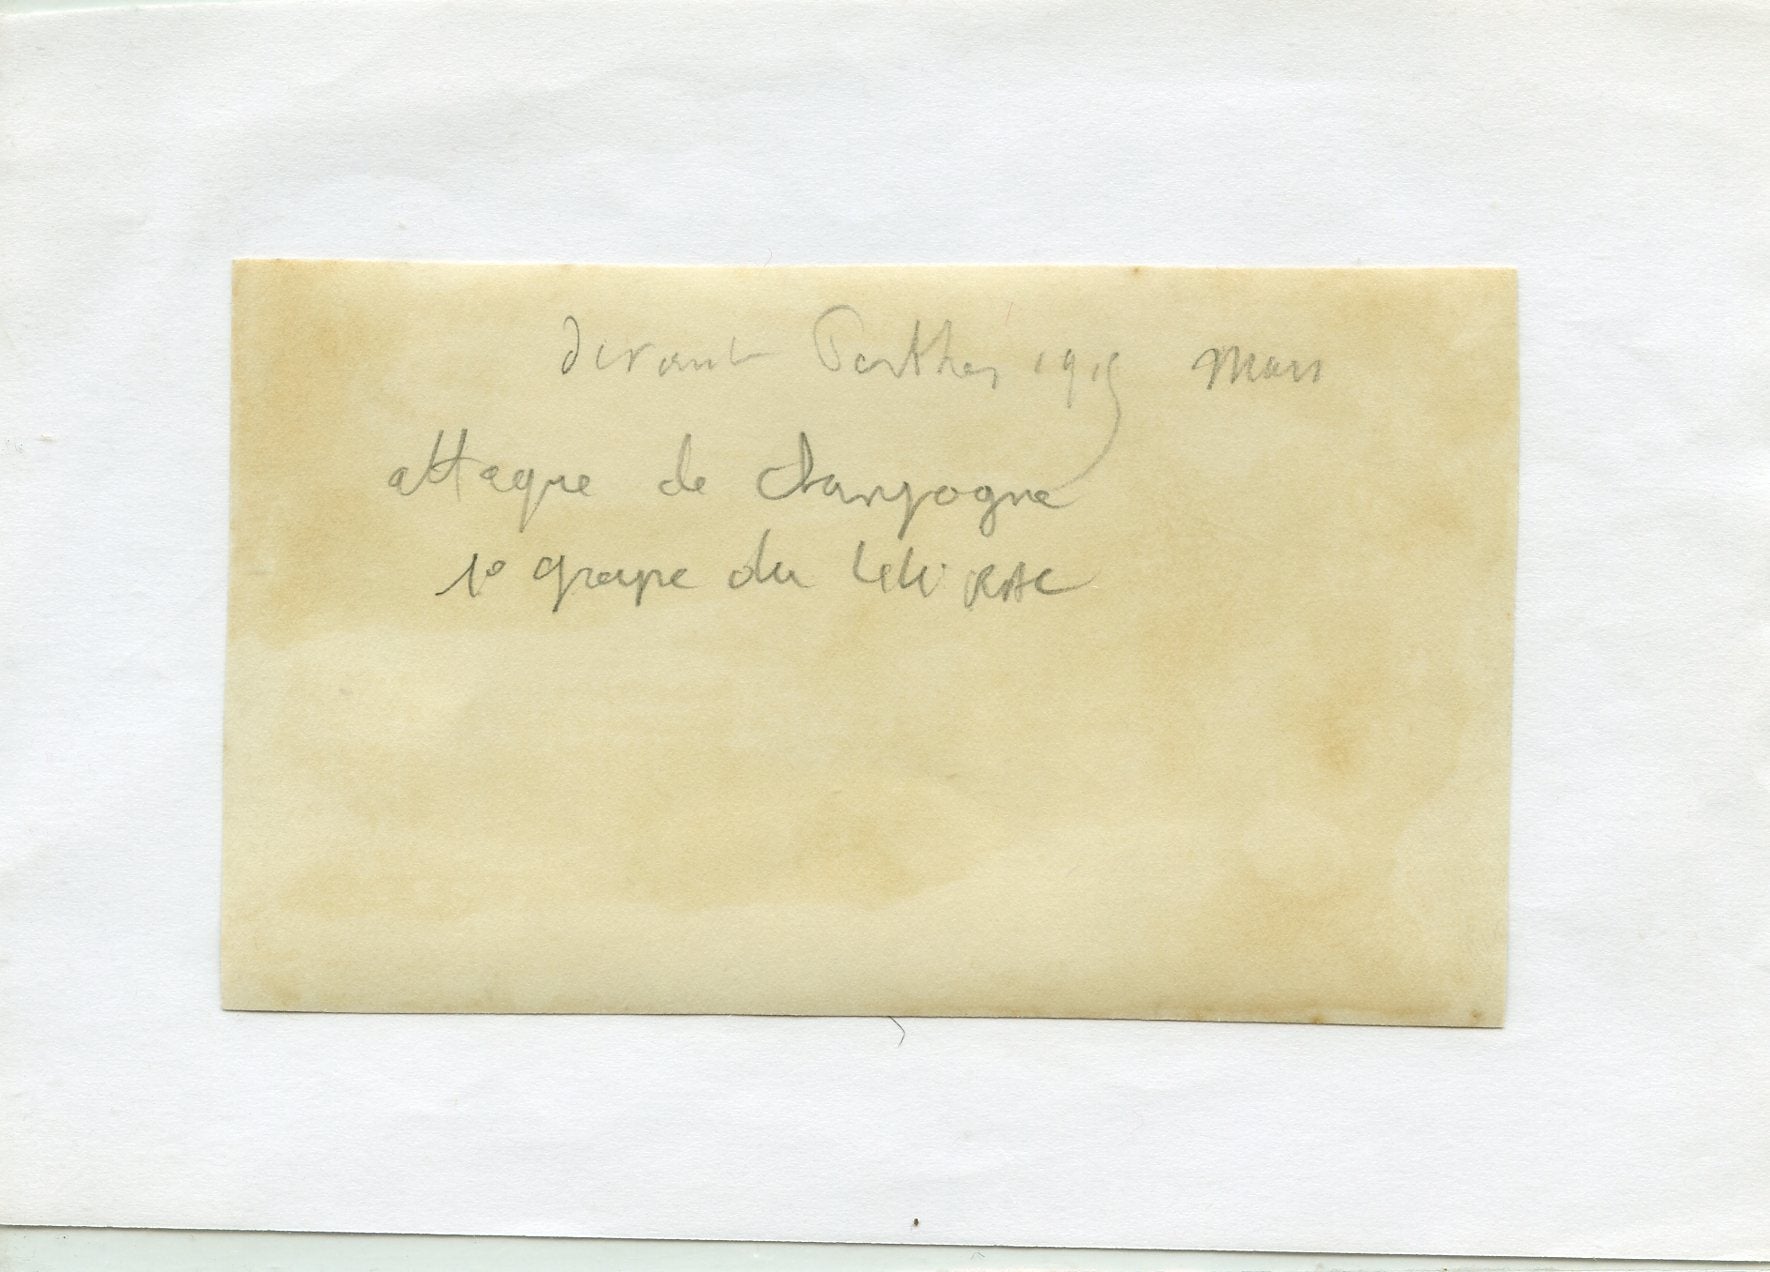 devant Perthes 1915 Mars
attaque de Champagne
1º groupe du 44º RAC